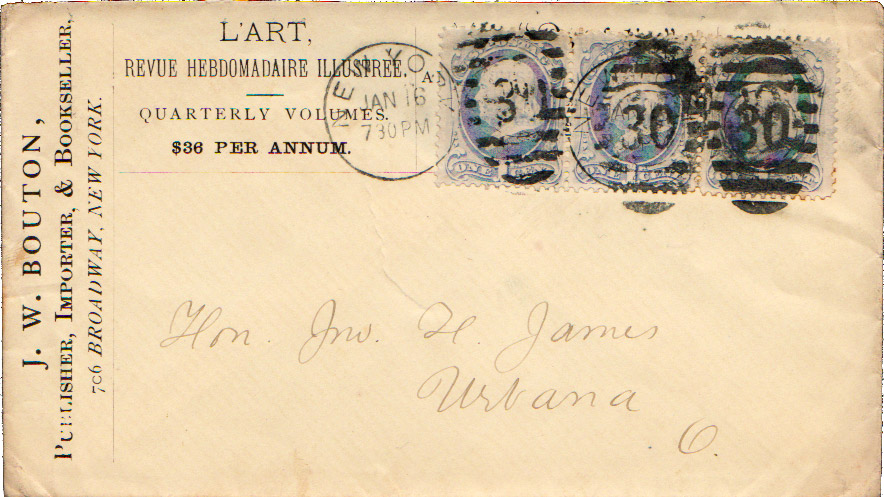 J. W. BOUTON,
PUBLISHER, IMPORTER, & BOOKSELLER,
706 BROADWAY, NEW YORK.
L'ART,
REVUE HEBDOMADAIRE ILLUSTRÉE.
QUARTERLY VOLUMES.
$36 PER ANNUM.
NEW YO
JAN 16
730PM
30
30
30
Hon. Jno. H. James
Urbana
O.